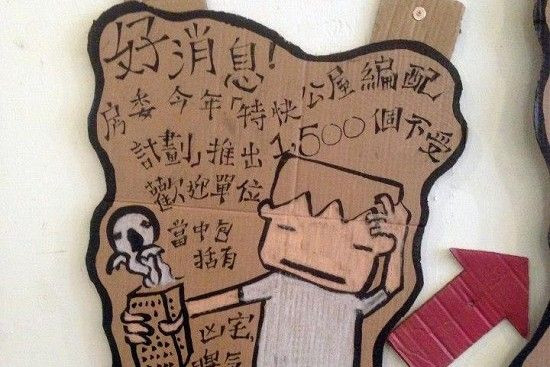 好消息!
房委今年「特快公屋編配
計劃」推出1,500個不受
歡迎單位
當中包
括有
凶宅,